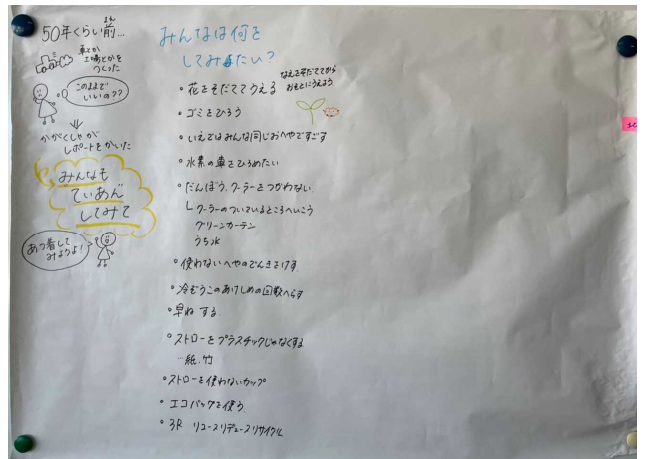 50年くらい前…
まえ
車とか
工場とかを
つくった
このままで
いいの??
かがくしゃが
レポートをかいた
みんなも
ていあん
してみて
あつ着して
みようよ!
みんなは何を
してみたい?
・花をそだててうえる
なえをそだててから
おもとにうえよう
・ゴミをひろう
・いえではみんな同じおへやですごす
・水素の車をひろめたい
・だんぼう、クーラーをつかわない
クーラーのついているところへいこう
グリーンカーテン
うち水
・使わないへやのでんきをけす
・冷ぞうこのあけしめの回数へらす
・早ねする
・ストローをプラスチックじゃなくする
…紙、竹
・ストローを使わないカップ
・エコバックを使う
・3R リユースリデュースリサイクル